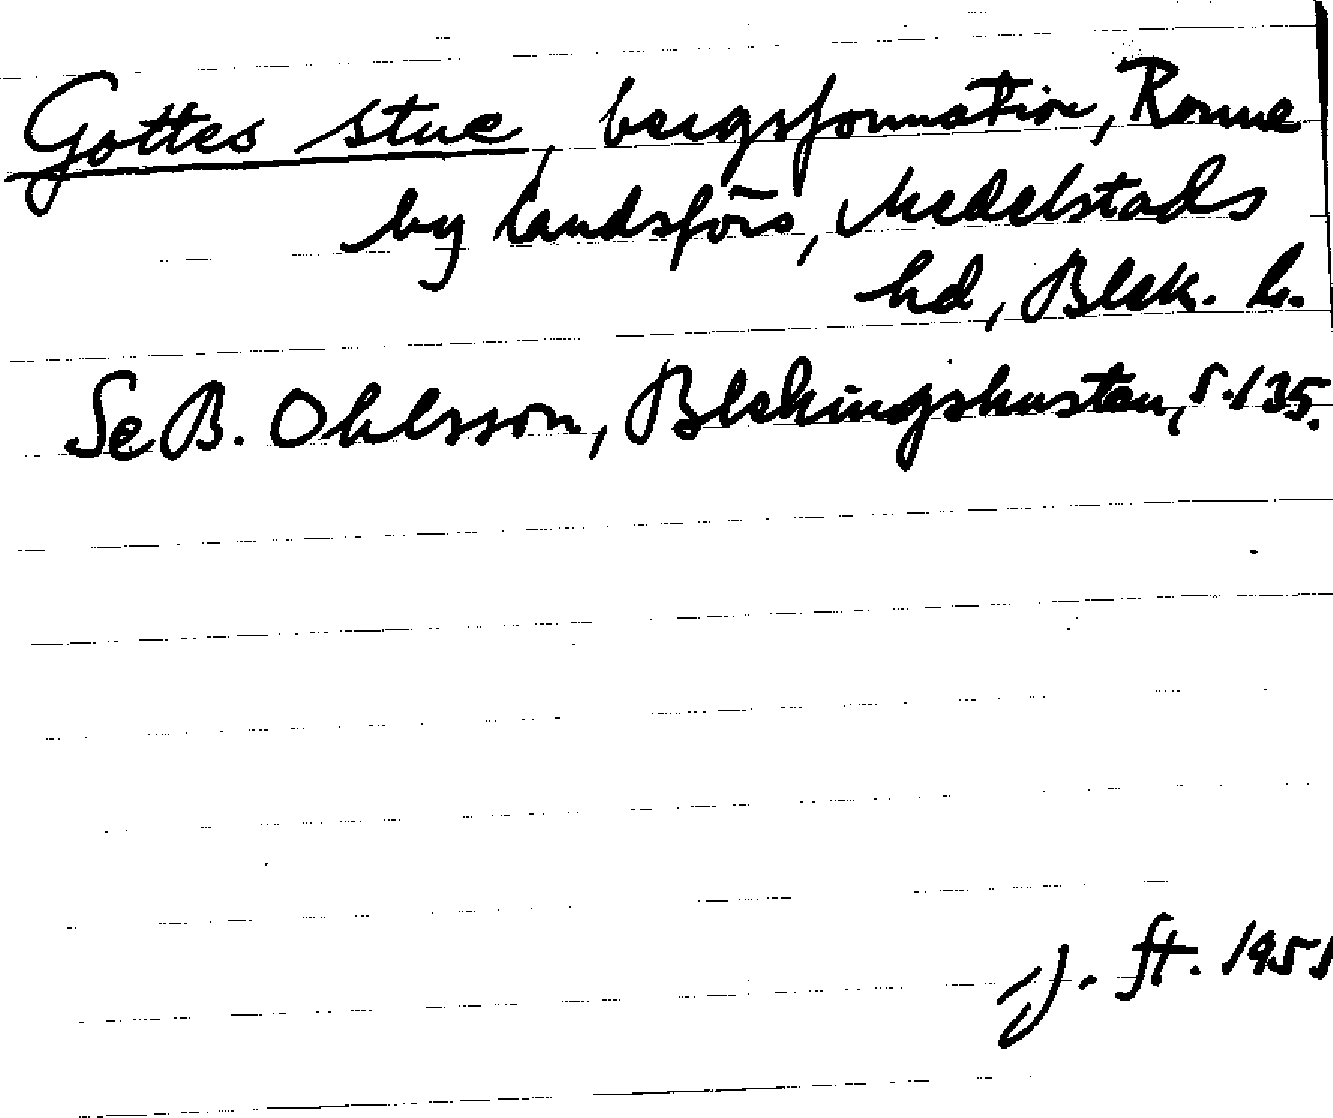 Gottes stue, bergsformation, Ronne
by landsförs, Medelstads
hd, Blek. l.
Se B. Ohlsson, Blekingskusten, s. 135.
J. ft. 1951